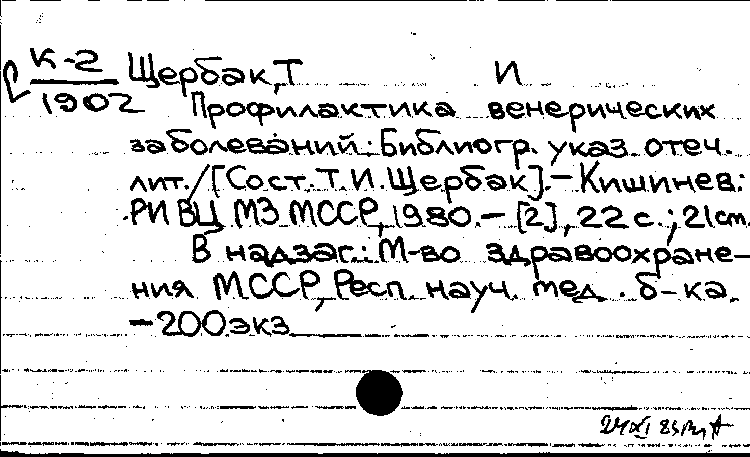 К-2 Щербак, Т И
1902 Профилактика венерических
заболеваний: Библиогр. указ. отеч.
лит. / [Сост. Т. И. Щербак]. – Кишинев:
РИВЦ МЗ МССР, 1980. – [2], 22 с.; 21 cm.
В надзаг.: М-во здравоохране-
ния МССР, Респ. науч. мед. б-ка.
– 200 экз